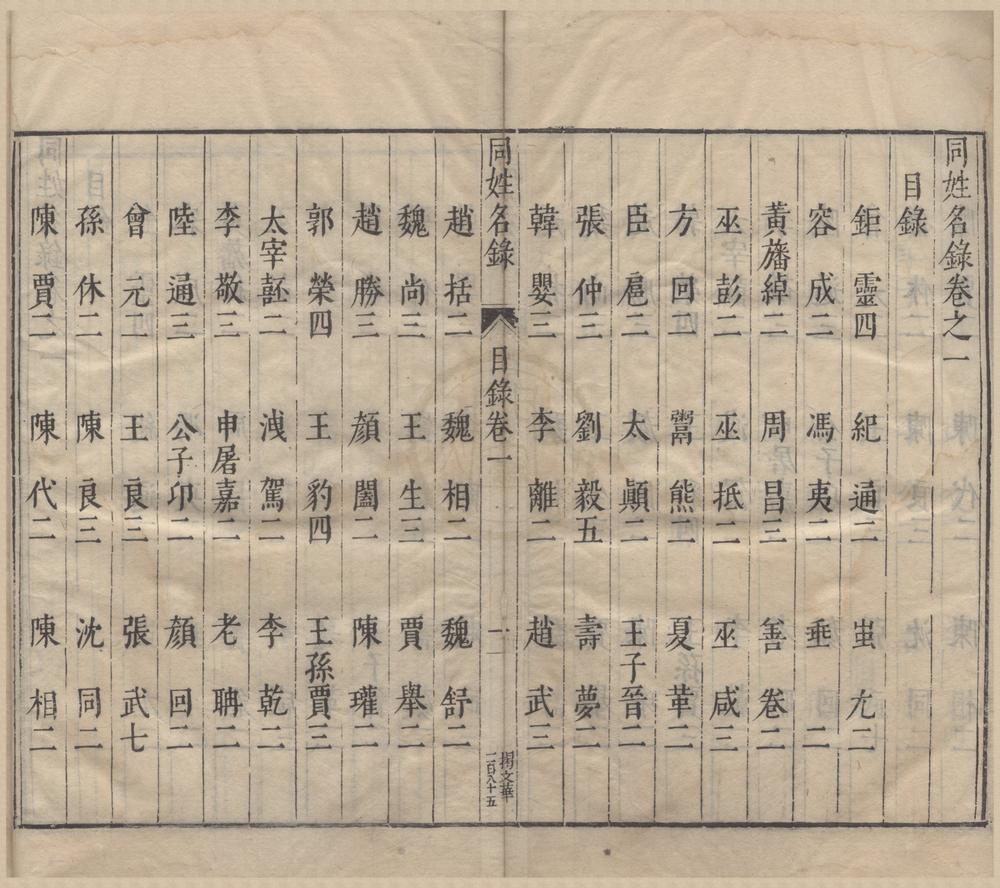 同姓名錄卷之一
目錄
鉅靈四 紀通二 蚩尤二
容成三 馮夷二 垂二
黃旛綽二 周昌三 善卷二
巫彭二 巫抵二 巫咸三
方回二 鬻熊二 夏革二
臣扈二 太顚二 王子晉二
張仲三 劉毅五 壽夢二
韓嬰三 李離二 趙武三
同姓名錄 目錄卷一 一 楊文華 二百八十五
趙括二 魏相二 魏舒二
魏尚三 王生三 賈舉二
趙勝三 顏闔二 陳瓘二
郭榮四 王豹四 王孫賈三
太宰嚭二 洩駕二 李乾二
李敬三 申屠嘉二 老聃二
陸通三 公子卬二 顏回二
曾元二 王良三 張武七
孫休二 陳良三 沈同二
陳賈二 陳代二 陳相二